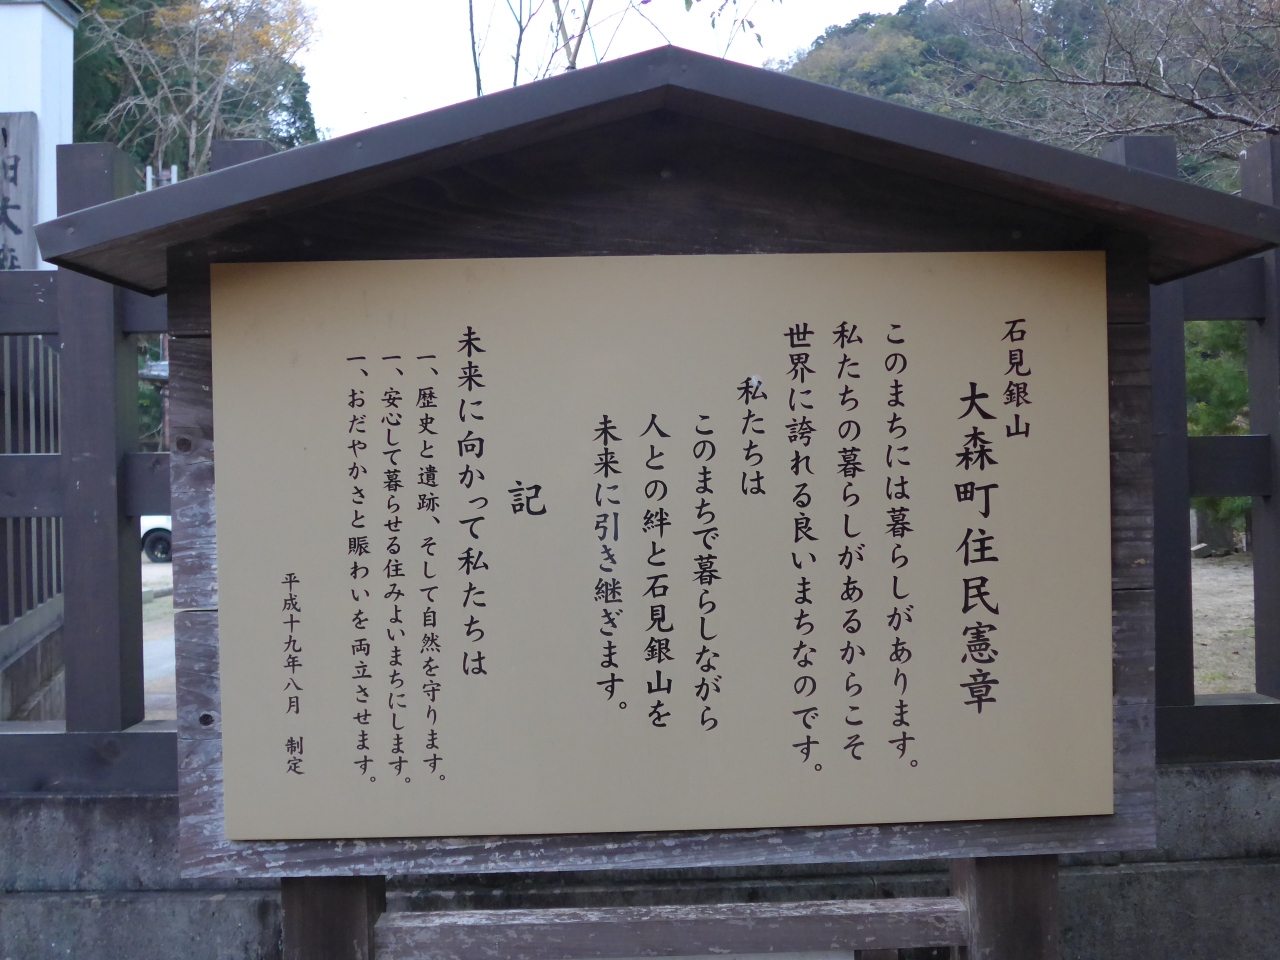 石見銀山
大森町住民憲章
このまちには暮らしがあります。
私たちの暮らしがあるからこそ
世界に誇れる良いまちなのです。
私たちは
このまちで暮らしながら
人との絆と石見銀山を
未来に引き継ぎます。
記
未来に向かって私たちは
一、歴史と遺跡、そして自然を守ります。
一、安心して暮らせる住みよいまちにします。
一、おだやかさと賑わいを両立させます。
平成十九年八月 制定
旧大森